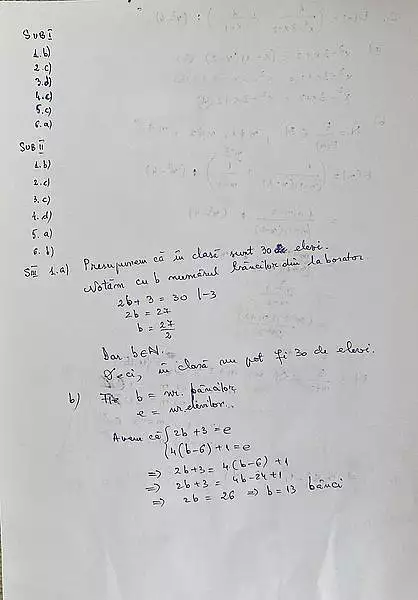 SUB I
1. b)
2. c)
3. d)
4. c)
5. c)
6. a)
SUB II
1. b)
2. c)
3. c)
4. d)
5. a)
6. b)
SIII 1. a) Presupunem că în clasă sunt 30 de elevi.
Notăm cu b numărul băncilor din laborator
2b + 3 = 30 |-3
2b = 27
b = 27/2
Dar b ∈ N.
Deci, în clasă nu pot fi 30 de elevi.
b) Fie b = nr. băncilor
e = nr. elevilor.
Avem că { 2b + 3 = e
4(b-6) + 1 = e
=> 2b+3 = 4(b-6) + 1
=> 2b+3 = 4b-24+1
=> 2b = 26 => b = 13 bănci